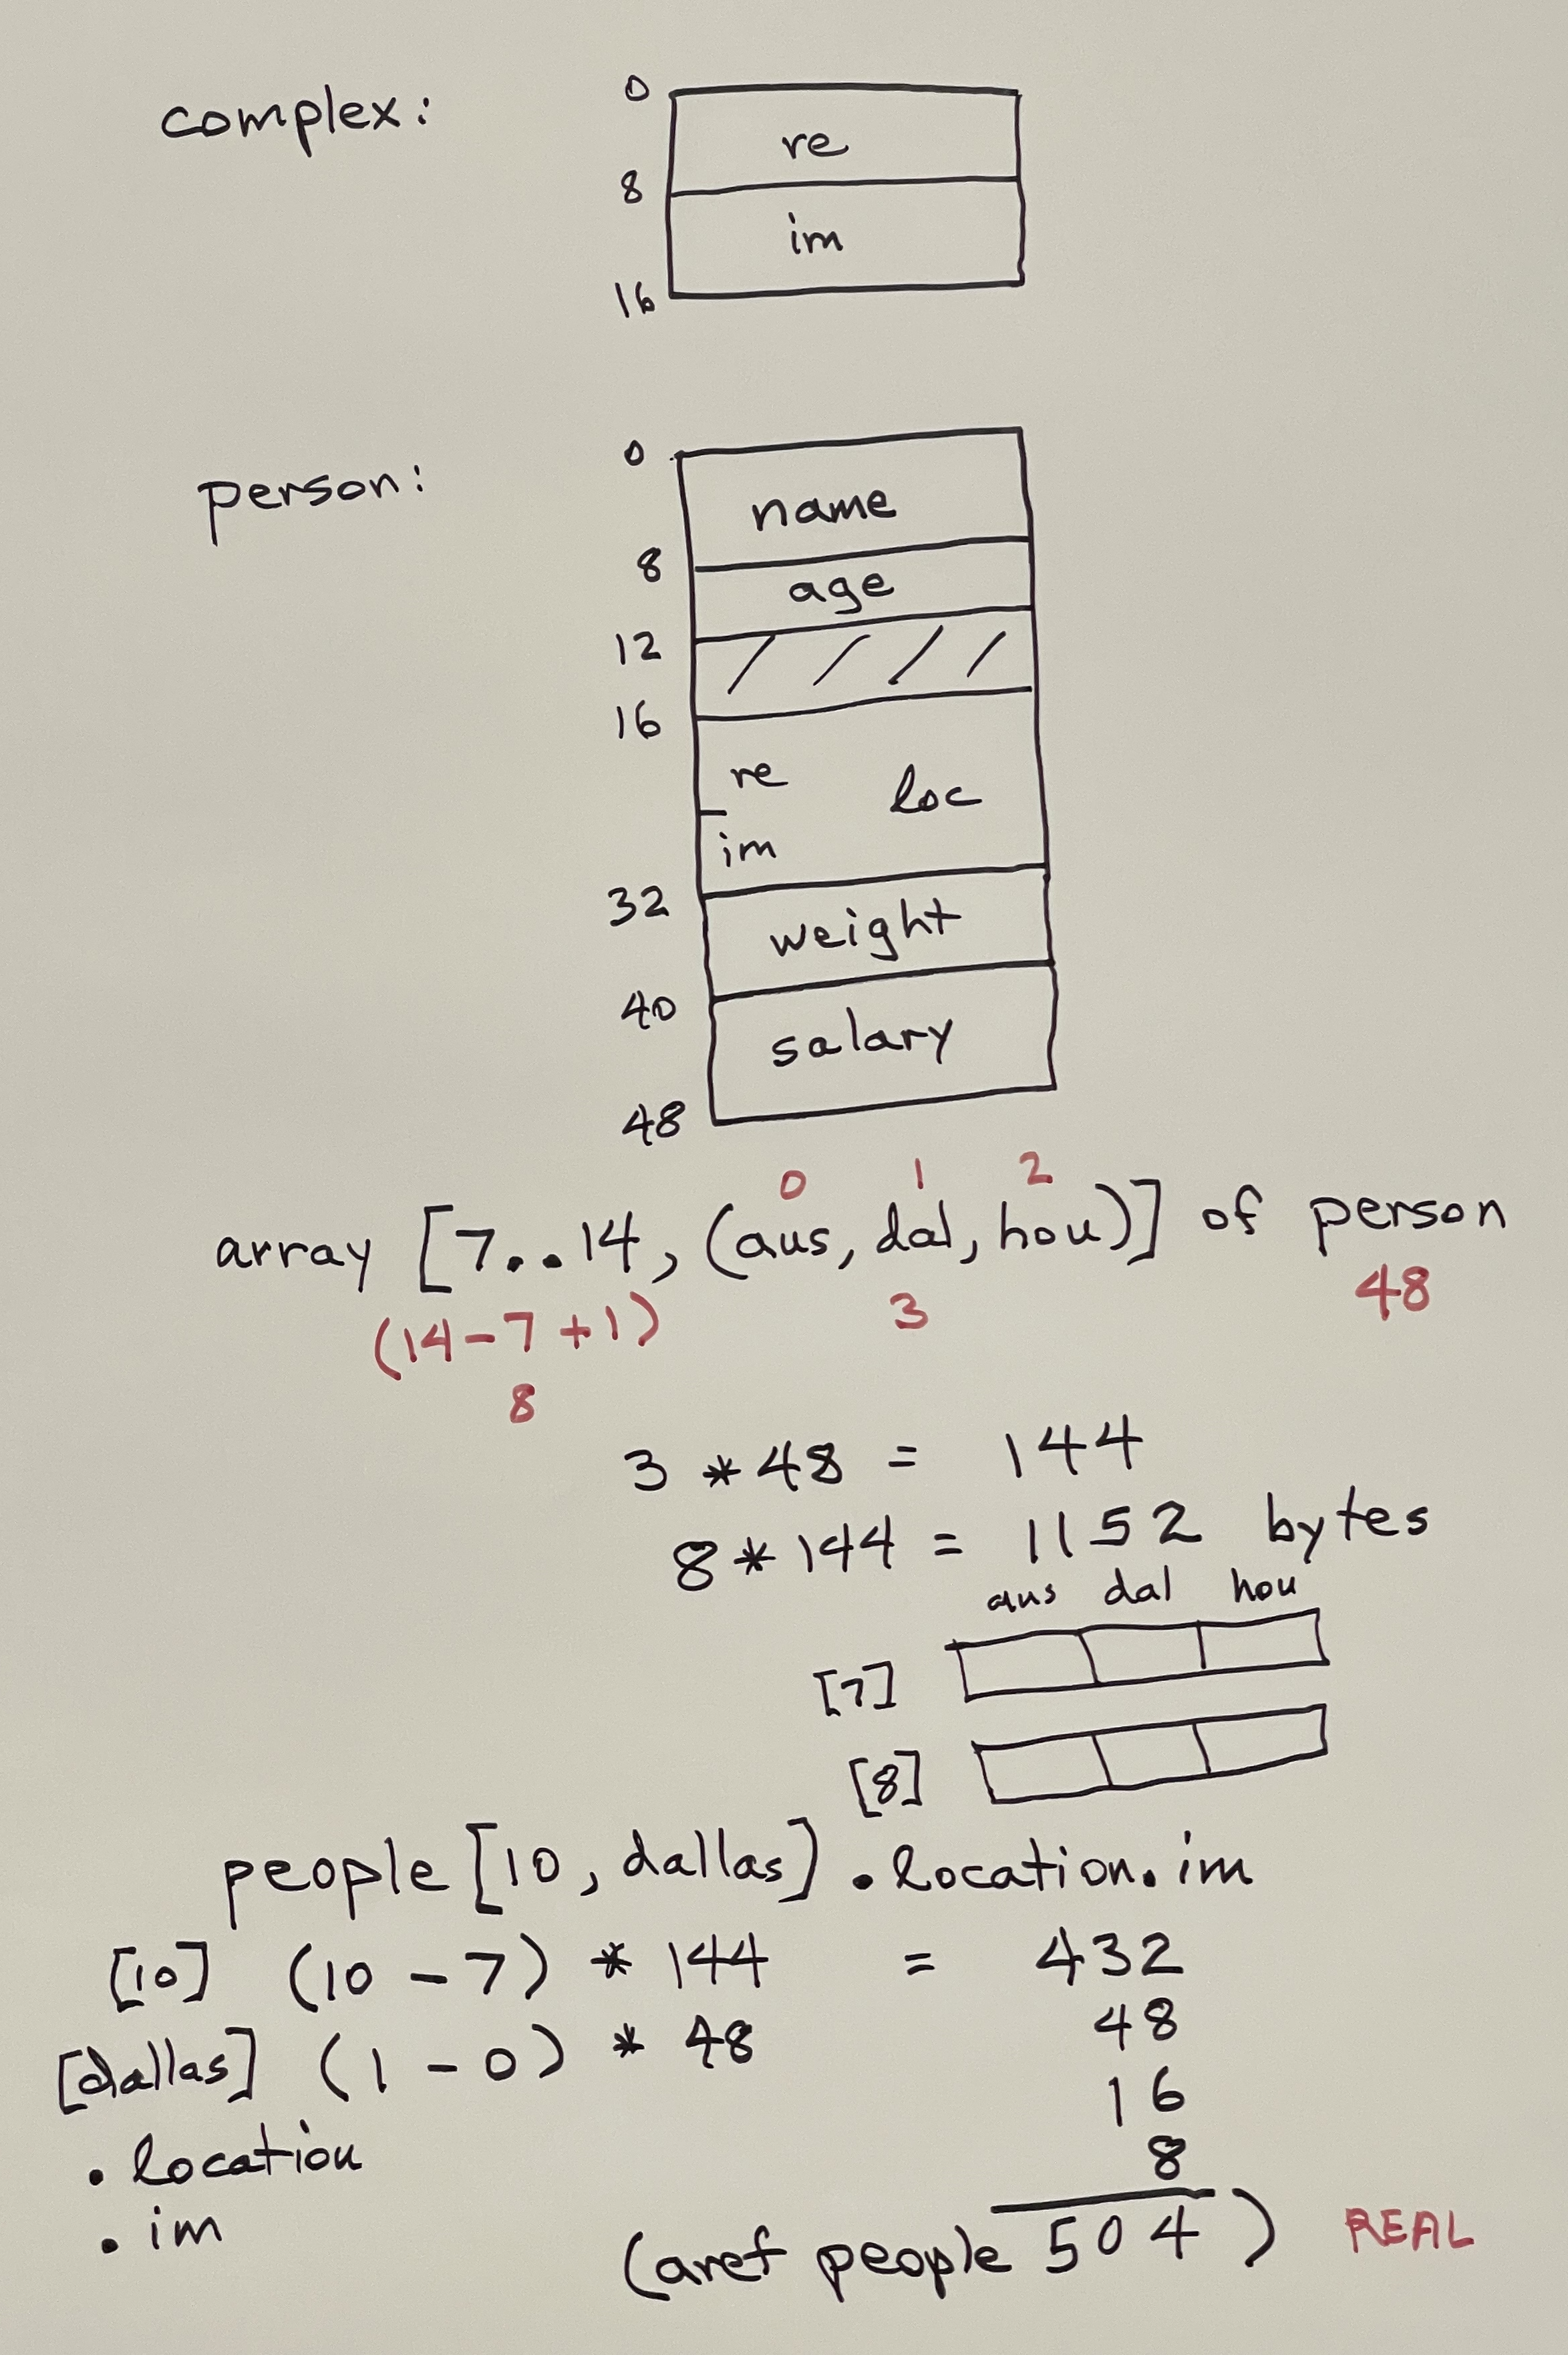 complex:
0
re
8
im
16
person:
0
name
8
age
12
16
re loc
im
32
weight
40
salary
48
0 1 2
array [7..14, (aus, dal, hou)] of person
(14-7+1) 3 48
8
3 * 48 = 144
8 * 144 = 1152 bytes
aus dal hou
[7]
[8]
people[10, dallas].location.im
[10] (10 - 7) * 144 = 432
[dallas] (1 - 0) * 48 48
16
.location 8
.im
(aref people 504) REAL